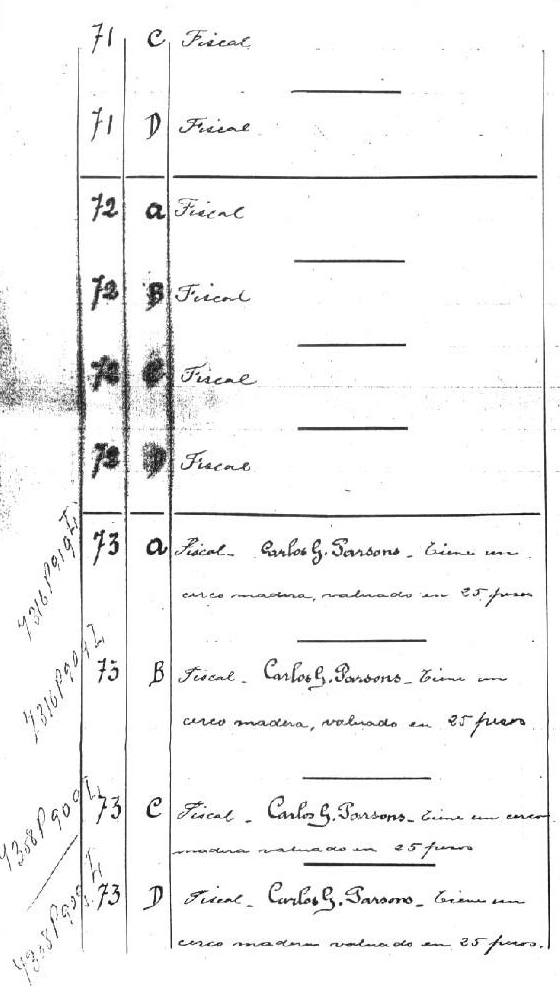 71 C Fiscal
71 D Fiscal
72 a Fiscal
72 B Fiscal
72 C Fiscal
72 D Fiscal
73 a Fiscal - Carlos G. Parsons - tiene un
cerco madera, valuado en 25 pesos
73 B Fiscal - Carlos G. Parsons - tiene un
cerco madera, valuado en 25 pesos
73 C Fiscal - Carlos G. Parsons - tiene un cerco
madera valuado en 25 pesos
73 D Fiscal - Carlos G. Parsons - tiene un
cerco madera valuado en 25 pesos.